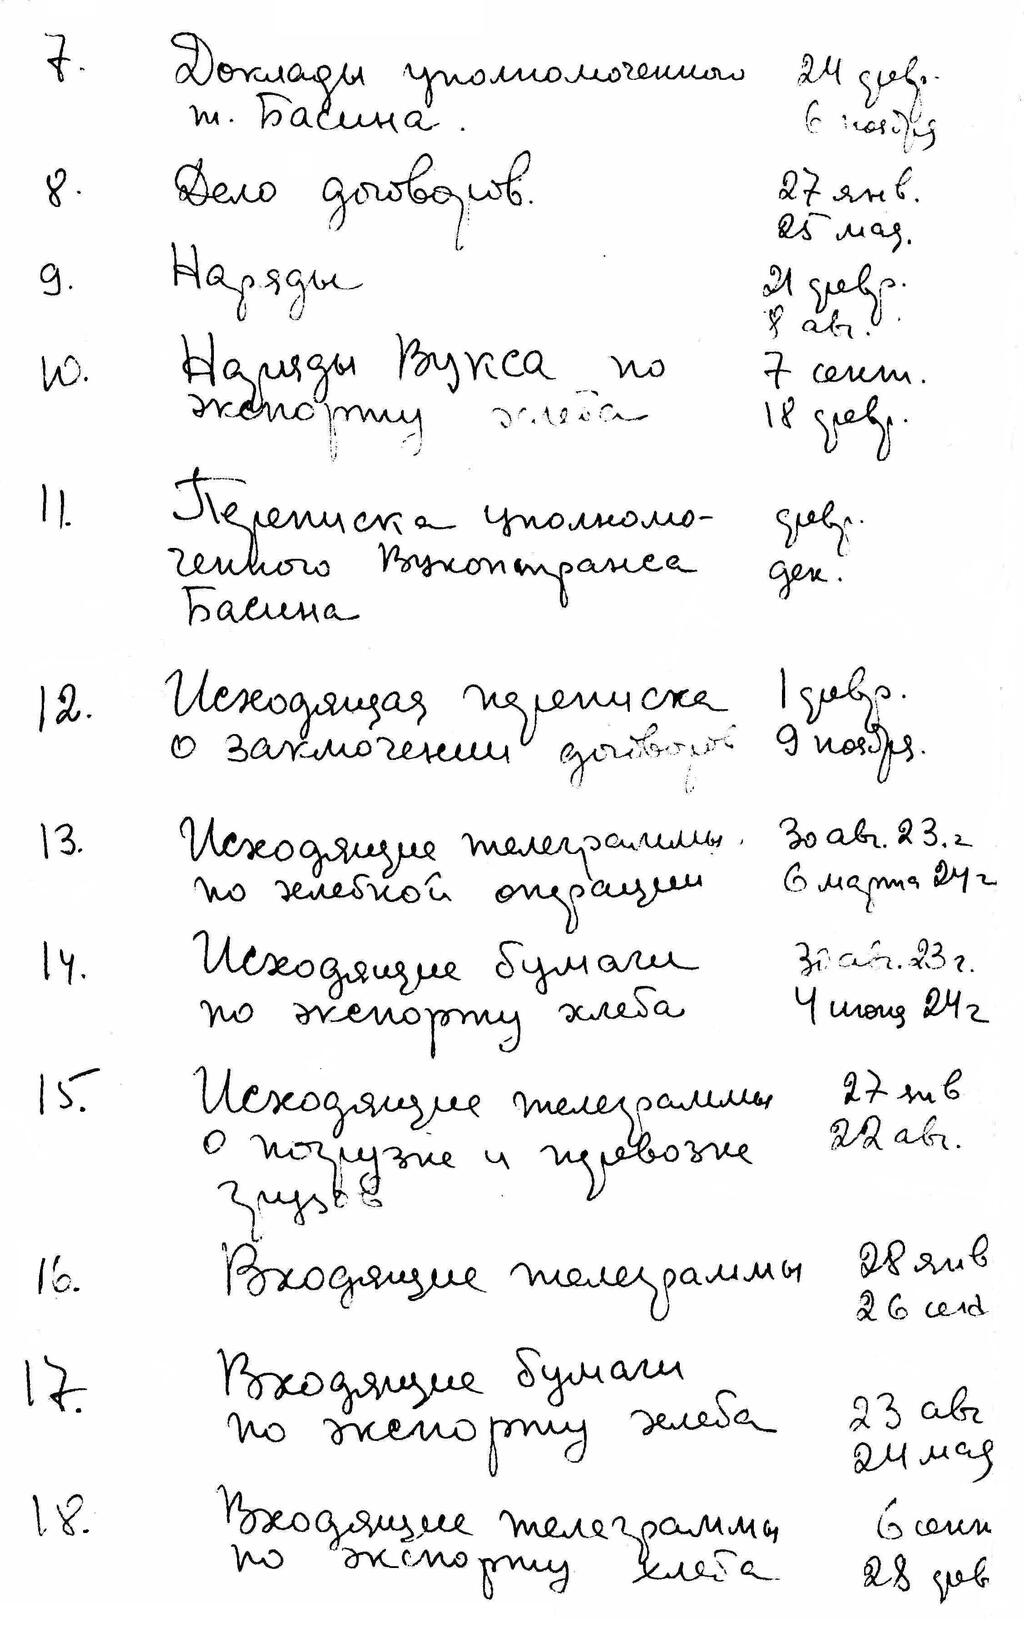 7. Доклады уполномоченного 24 февр.
т. Басина. 6 ноября
8. Дело договоров. 27 янв.
25 мая.
9. Наряды 21 февр.
8 авг.
10. Наряды Вукса по 7 сент.
экспорту хлеба 18 февр.
11. Переписка уполномо- февр.
ченного Вукоптранса дек.
Басина
12. Исходящая переписка 1 февр.
о заключении договоров 9 ноября.
13. Исходящие телеграммы. 30 авг. 23.г
по хлебной операции 6 марта 24 г
14. Исходящие бумаги 30 авг. 23 г.
по экспорту хлеба 4 июня 24 г
15. Исходящие телеграммы 27 янв
о погрузке и перевозке 22 авг.
грузов
16. Входящие телеграммы 28 янв
26 сент
17. Входящие бумаги
по экспорту хлеба 23 авг
24 мая
18. Входящие телеграммы 6 сент
по экспорту хлеба 28 фев